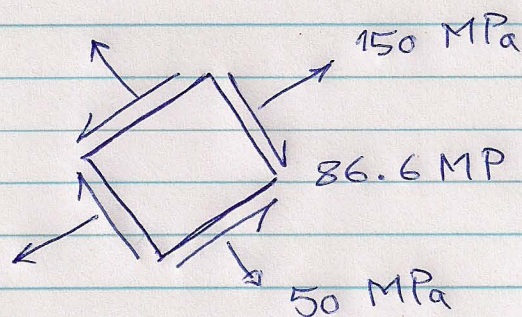 150 MPa
86.6 MP
50 MPa